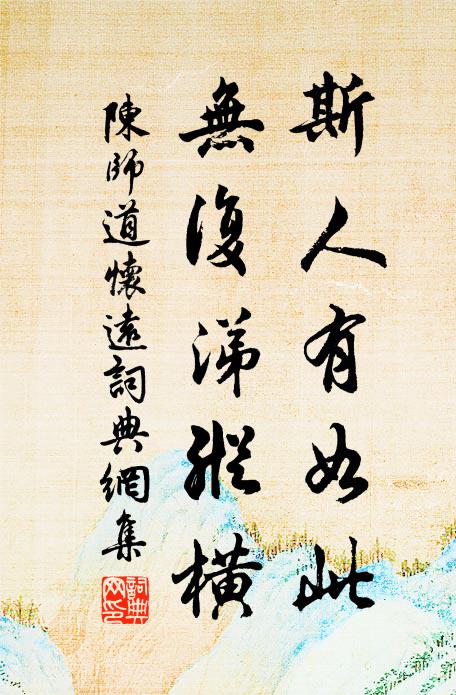 斯人有如此
無復涕縱橫
陳師道懷遠詞典網集
詞典網印